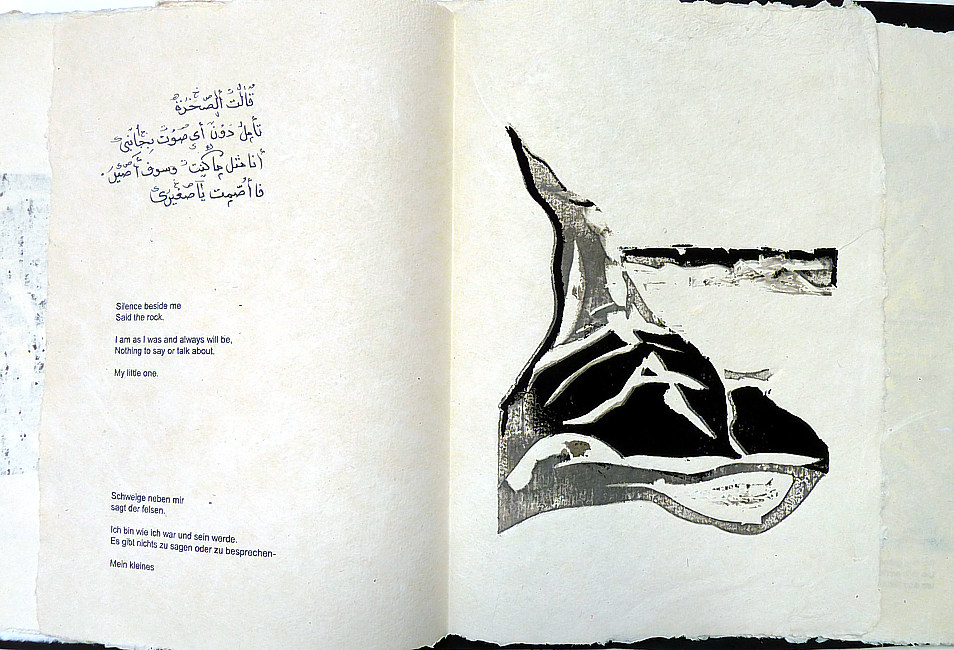 قَالَتْ الصَّخْرَةُ
تأمل دُونَ أي صَوْت بِجَانبي
أنا مثل ما كنت وسوف أصير.
فاأصمت يا صغيري
Silence beside me
Said the rock.
I am as I was and always will be,
Nothing to say or talk about.
My little one.
Schweige neben mir
sagt der felsen.
Ich bin wie ich war und sein werde.
Es gibt nichts zu sagen oder zu besprechen-
Mein kleines